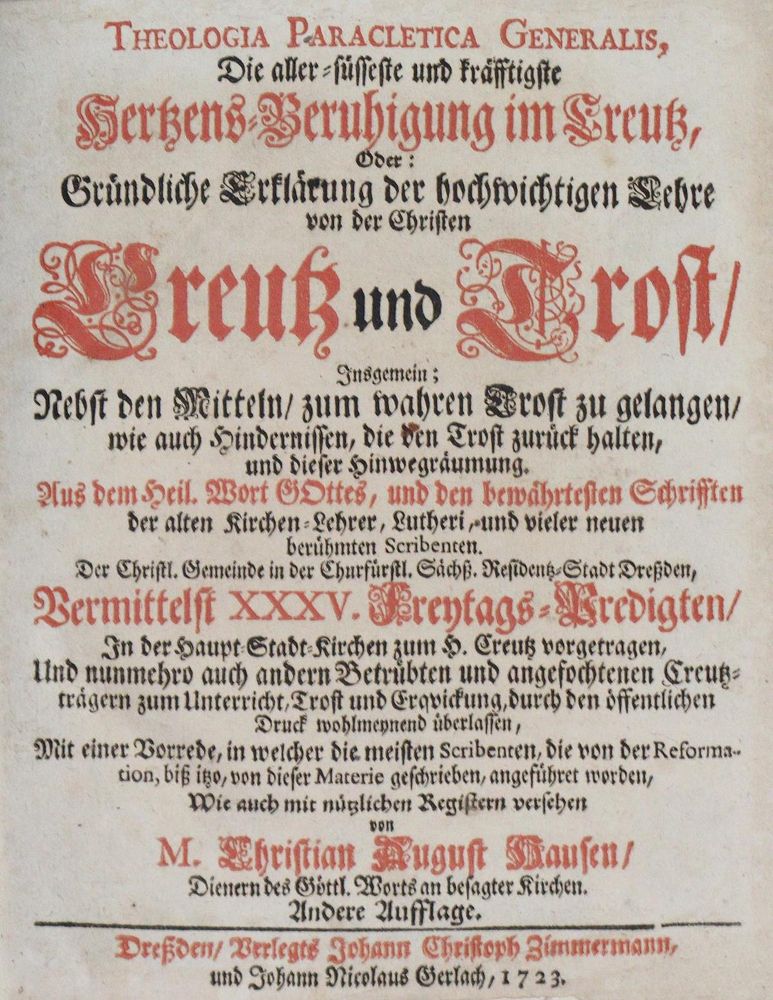 THEOLOGIA PARACLETICA GENERALIS,
Die aller-süsseste und kräfftigste
Hertzens-Beruhigung im Creutz,
Oder:
Gründliche Erklärung der hochwichtigen Lehre
von der Christen
Creutz und Trost/
Insgemein;
Nebst den Mitteln/ zum wahren Trost zu gelangen/
wie auch Hindernissen, die den Trost zurück halten,
und dieser Hinwegräumung.
Aus dem Heil. Wort GOttes, und den bewährtesten Schrifften
der alten Kirchen-Lehrer, Lutheri, und vieler neuen
berühmten Scribenten.
Der Christl. Gemeinde in der Churfürstl. Sächß. Residentz-Stadt Dreßden,
Vermittelst XXXV. Freytags-Predigten/
In der Haupt-Stadt-Kirchen zum H. Creutz vorgetragen,
Und nunmehro auch andern Betrübten und angefochtenen Creutz-
trägern zum Unterricht, Trost und Erqvickung, durch den öffentlichen
Druck wohlmeynend überlassen,
Mit einer Vorrede, in welcher die meisten Scribenten, die von der Reforma-
tion, biß itzo, von dieser Materie geschrieben, angeführet worden,
Wie auch mit nützlichen Registern versehen
von
M. Christian August Hausen/
Dienern des Göttl. Worts an besagter Kirchen.
Andere Aufflage.
Dreßden/ Verlegts Johann Christoph Zimmermann,
und Johann Nicolaus Gerlach, 1723.